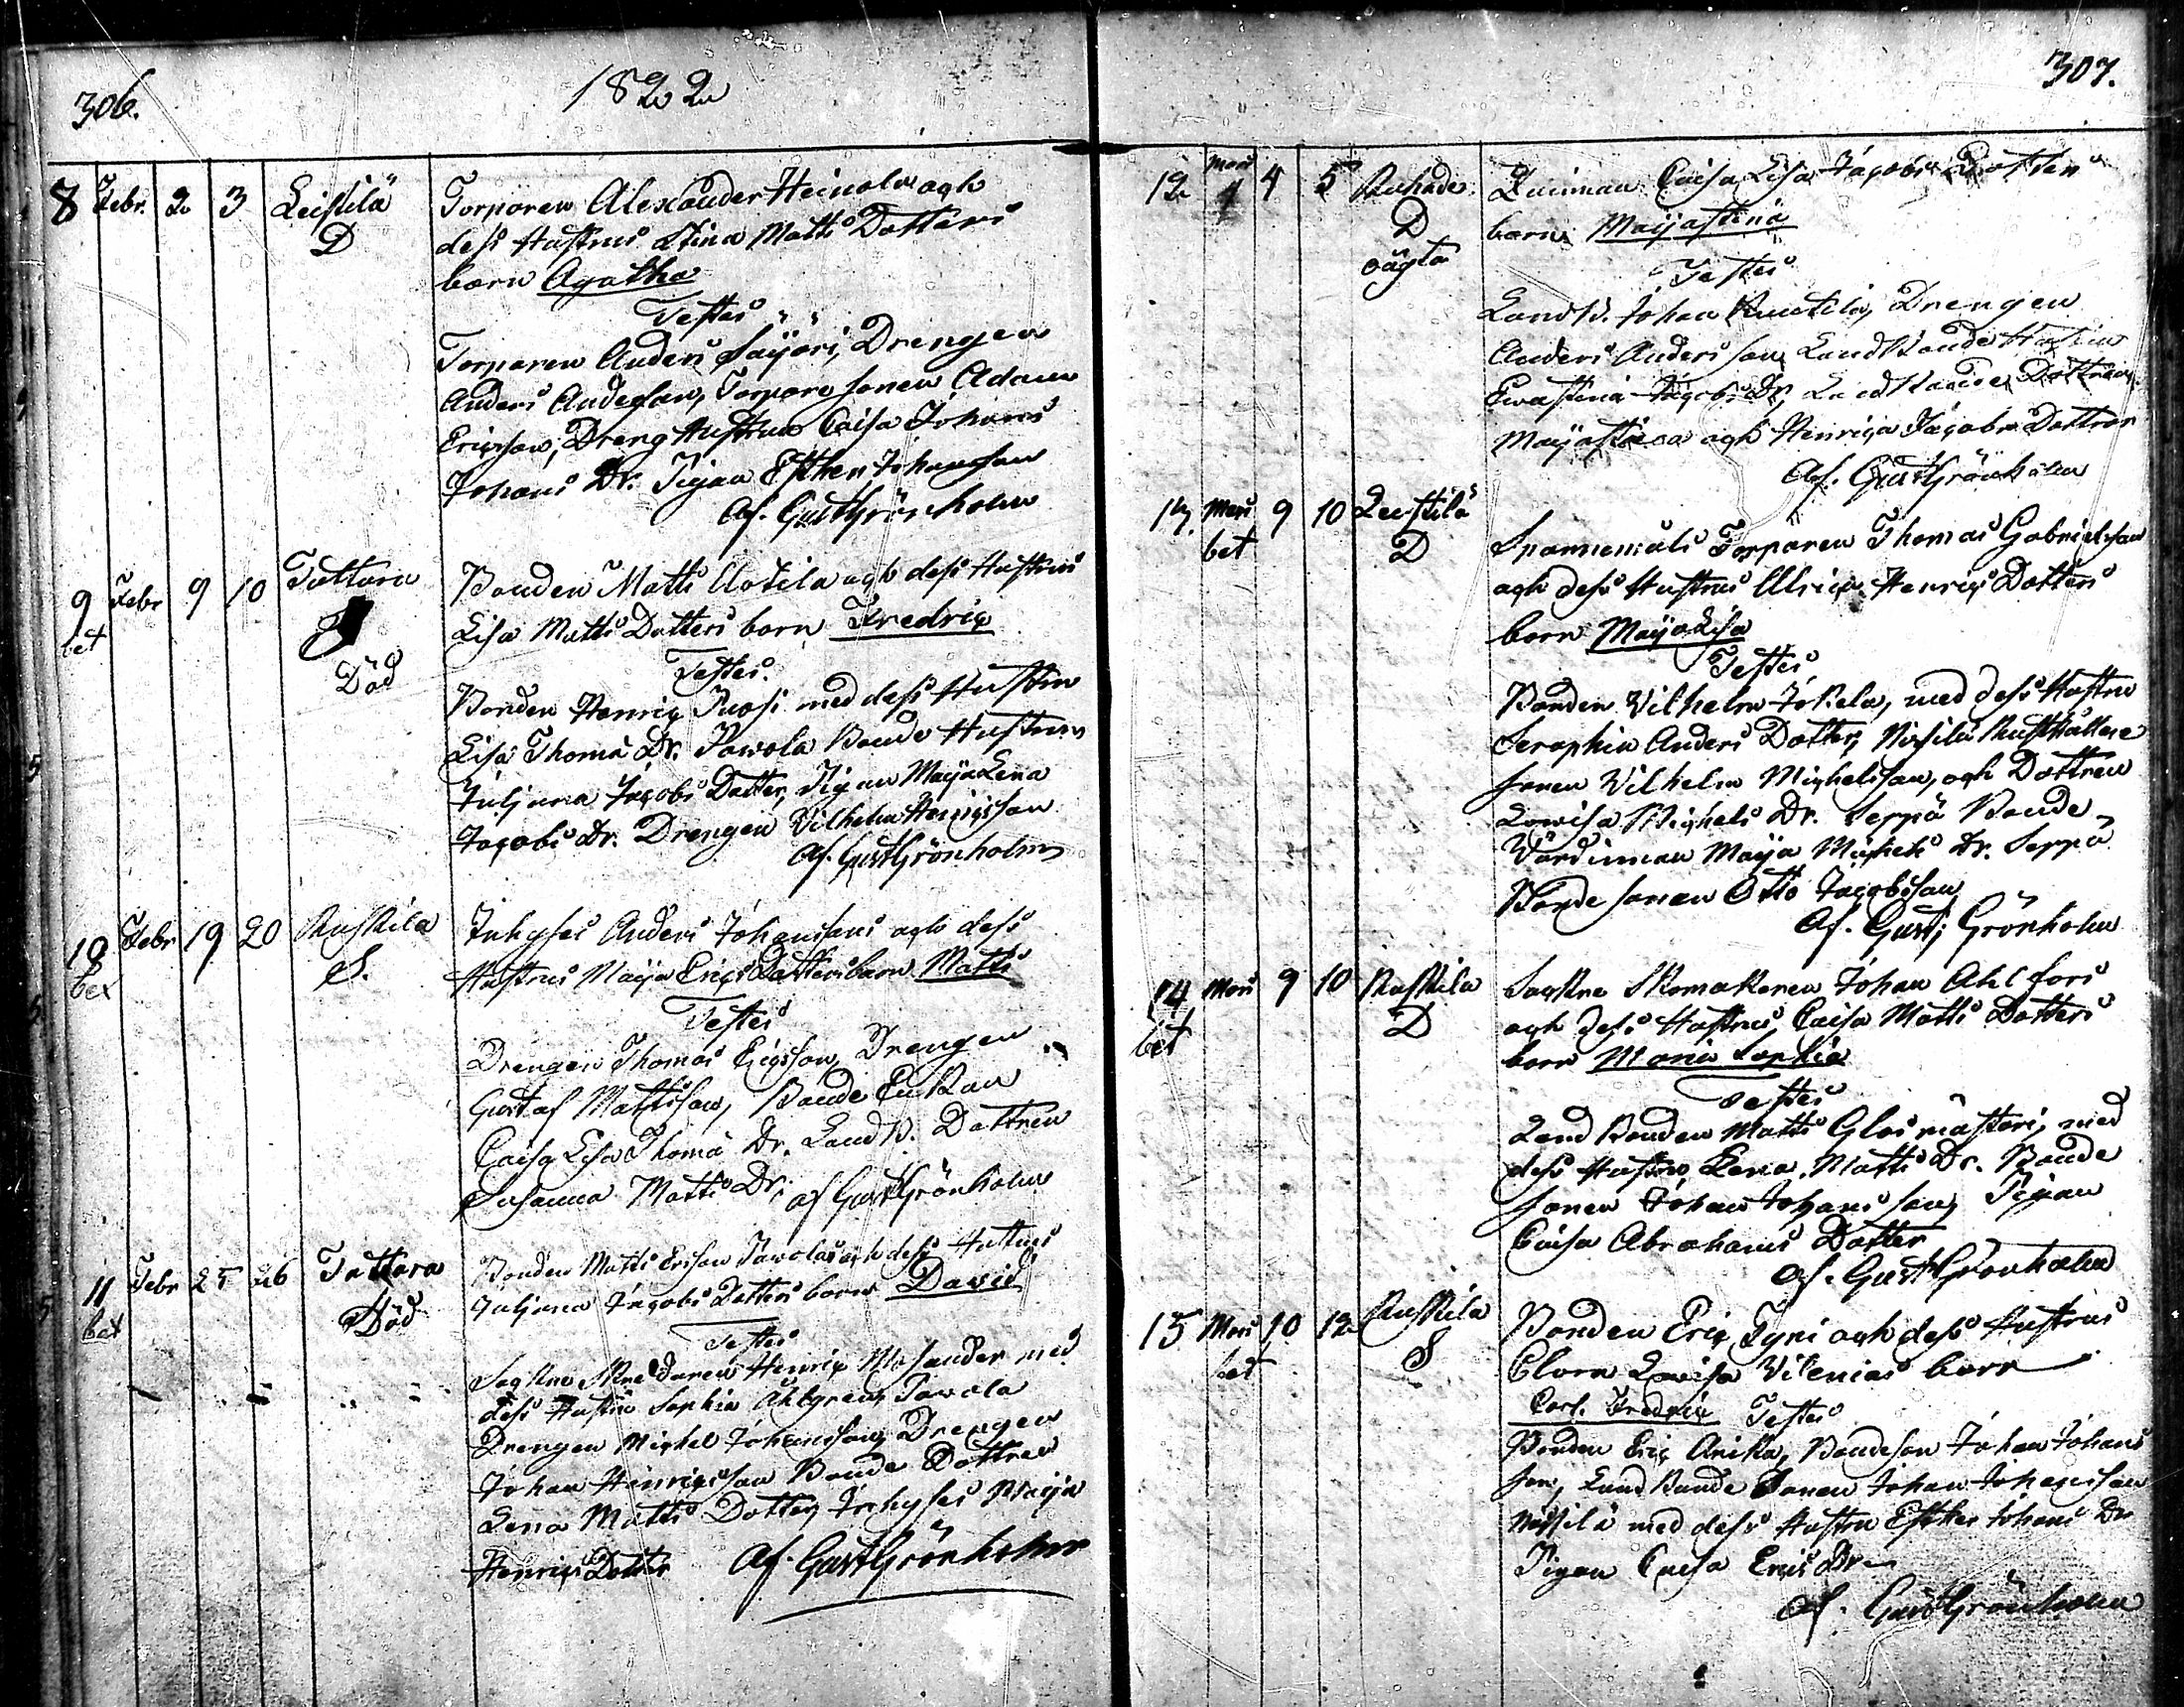 306.
1822
8 Febr. 2 3 Leistilä
D
Torparen Alexander Heinola och
dess Hustrus Stina Matts Dotters
barn Agatha
Testes
Torparen Anders Säÿäri, Drengen
Anders Andersson, Torpare sonen Adam
Ericsson, Dreng Hustrun Caisa Johans
Johans Dr. Pigan Esther Johansson
Af. Gust Grönholm
9 Febr 9 10 Tattara
bet
Död
Bonden Matts Aotila och dess Hustrus
Lisa Matts Dotters barn Fredric
Testes.
Bonden Henric Juosi med dess Hustru
Lisa Thoma Dr. Pawola Bonde Hustrun
Juljana Jacobs Dotter, Pigan Maija Lena
Jacobs Dr. Drengen Vilhelm Henricsson
Af. Gust Grönholm
10 Febr 19 20 Ruskila
bet
S.
Inhyses Anders Johanssons och dess
Hustrus Maija Erics Dotters barn Matts
Testes
Drengen Thomas Ericsson, Drengen
Gustaf Mattsson, Bonde Enkan
Caisa Lisa Thoma Dr. Land B. Dottren
Susanna Matts Dr. af Gust Grönholm
11 Febr 25 26 Tattara
bet
Död
Bonden Matts Ersson Pawolas och dess Hustrus
Juljana Jacobs Dotters barn David
Testes
Sockne Skreddaren Henric Mosander med
dess Hustru Sophia Ahlgren, Pawola
Drengen Michel Johansson, Drengen
Johan Henricsson Bonde Dottren
Lena Matts Dotter, Inhyses Maija
Henrics Dotter Af. Gust Grönholm
307.
12 Mars 1 4 5
D
oägta
Qvinnan Caisa Lisa Jacobs Dotters
barn Maijastina
Testes
Land B. Johan Anderson Drengen
Anders Andersson Landbonde Hustru
Ewastina Jacobs Dr, Landbonde Dottren
Maijastina och Henrica Jacobs Dottrar
Af. Gust Grönholm
Mars 9 10 Leistilä
bet
D
Spannemåls Torparen Thomas Gabrielsson
och dess Hustrus Ulrica Henrics Dotters
barn Maija Lisa
Testes
Bonden Vilhelm Jokela, med dess Hustru
Seraphia Anders Dotter, Missilä Rusthållare
sonen Vilhelm Michelsson, och Dottren
Lowisa Michels Dr. Seppä Bonde
Värdinnan Maija Michels Dr. Seppä
Bonde sonen Otto Jacobsson
Af. Gust; Grönholm
14 Mars 9 10 Ruskila
bet
D
Sockne Skomakaren Johan Ahlfors
och dess Hustrus, Caisa Matts Dotters
barn Maria Sophia
Testes
Land Bonden Matts Glasmästari, med
dess Hustru Lena Matts Dr. Bonde
sonen Johan Johansson, Pigan
Caisa Abrahams Dotter
Af. Gust Grönholm
15 Mars 10 12 Ruskila
bet
S
Bonden Eric Tyni och dess Hustrus
Clara Lovisa Vilenias barn
Carl Fredric Testes
Bonden Eric Anika, Bondeson Johan Johans
son, Land Bonde Sonen Johan Johansson
Missilä med dess Hustru Esther Johans Dr
Pigan Caisa Erics Dr
Af. Gust Grönholm